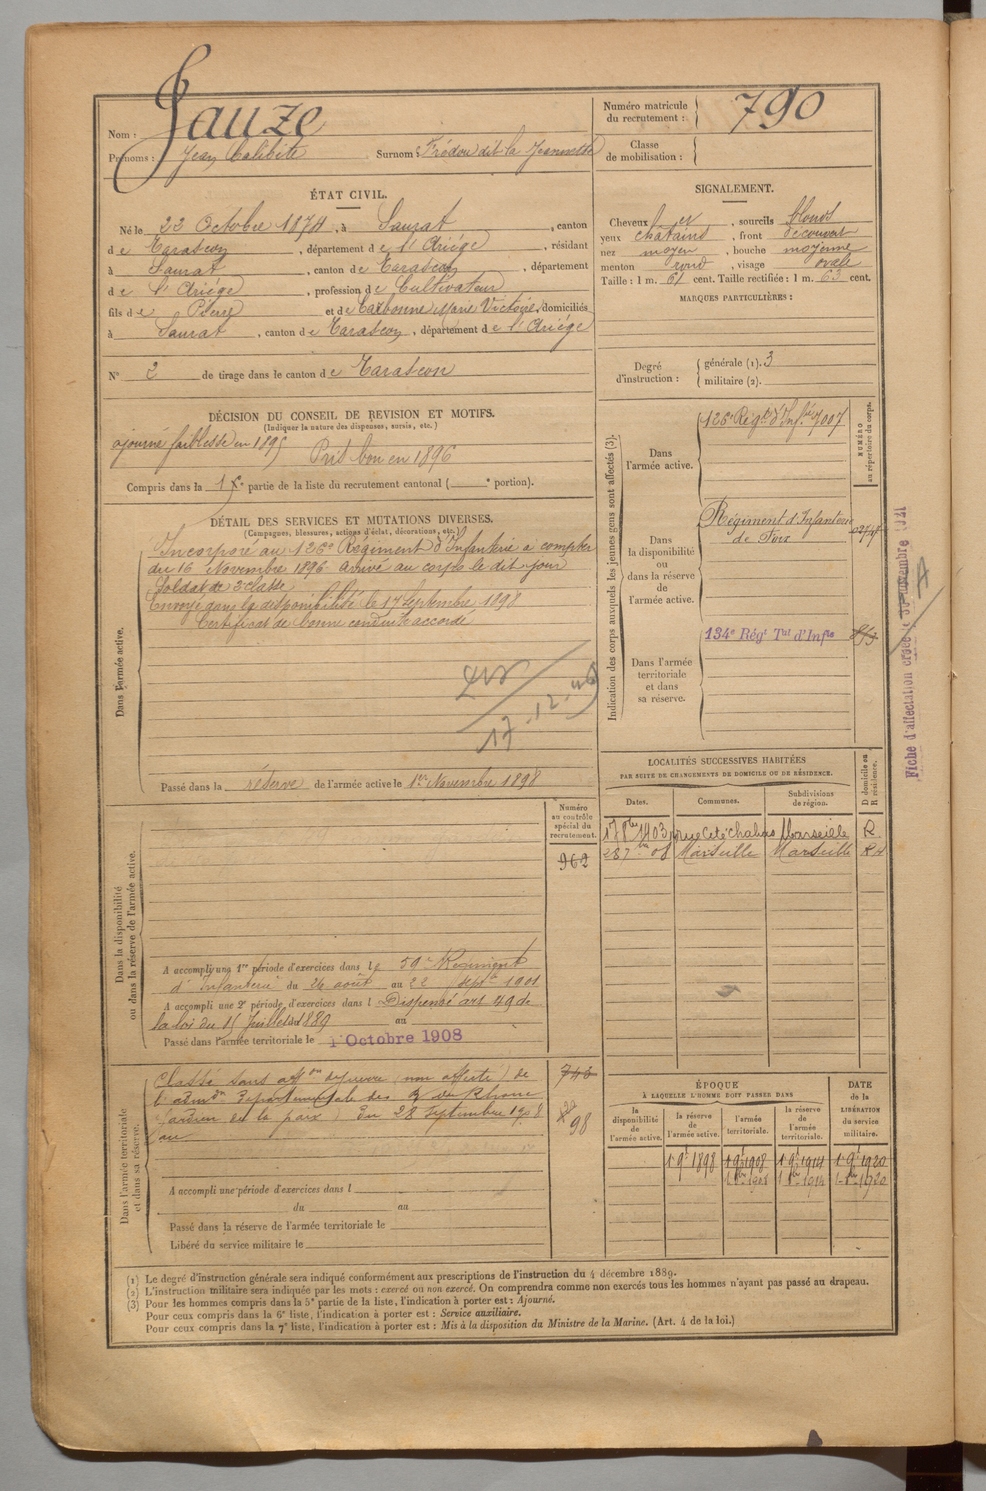 Nom : Jauze
Numéro matricule du recrutement : 790
Prénoms : Jean Calibite Surnom : Trédou dit la Jeannette
Classe de mobilisation :
ÉTAT CIVIL.
Né le 22 Octobre 1874, à Saurat, canton
de Tarascon, département de l'Ariège, résidant
à Saurat, canton de Tarascon, département
de l'Ariège, profession de Cultivateur
fils de Pierre et de Carbonne Marie Victoire, domiciliés
à Saurat, canton de Tarascon, département de l'Ariège
N° 2 de tirage dans le canton de Tarascon
SIGNALEMENT.
Cheveux et, sourcils blonds
yeux chatains, front découvert
nez moyen, bouche moyenne
menton rond, visage ovale
Taille : 1 m. 61 cent. Taille rectifiée : 1 m. 63 cent.
MARQUES PARTICULIÈRES :
Degré d'instruction :
générale (1). 3
militaire (2).
DÉCISION DU CONSEIL DE REVISION ET MOTIFS.
(Indiquer la nature des dispenses, sursis, etc.)
ajourné faiblesse en 1895
Pris bon en 1896
Compris dans la 1re partie de la liste du recrutement cantonal ( e portion).
DÉTAIL DES SERVICES ET MUTATIONS DIVERSES.
(Campagnes, blessures, actions d'éclat, décorations, etc.)
Dans l'armée active.
Incorporé au 126e Régiment d'Infanterie à compter
du 16 Novembre 1896 arrivé au corps le dit jour
Soldat de 2e classe
Envoyé dans la disponibilité le 17 Septembre 1898
Certificat de bonne conduite accordé
17-12-46
Passé dans la réserve de l'armée active le 1er Novembre 1898
Indication des corps auxquels les jeunes gens sont affectés (3).
NUMÉRO au répertoire du corps.
Dans l'armée active.
126e Régt d'Infie 7007
Dans la disponibilité ou dans la réserve de l'armée active.
Régiment d'Infanterie
de Foix
Dans l'armée territoriale et dans sa réserve.
134e Régt Tal d'Infie
Fiche d'affectation créée le 30 novembre 1921
LOCALITÉS SUCCESSIVES HABITÉES
PAR SUITE DE CHANGEMENTS DE DOMICILE OU DE RÉSIDENCE.
Dates. Communes. Subdivisions de région. D domicile ou R résidence.
17 8bre 1903 Marseille R
28 7bre 08 Marseille Marseille R
Dans la disponibilité ou dans la réserve de l'armée active.
Numéro au contrôle spécial du recrutement.
962
A accompli une 1re période d'exercices dans le 59e Régiment
d'Infanterie du 26 août au 22 septbre 1901
A accompli une 2e période d'exercices dans l Dispensé art 49 de
la loi du 15 Juillet 1889 au
Passé dans l'armée territoriale le 1 Octobre 1908
Dans l'armée territoriale et dans sa réserve.
Classé sans affon de guerre (non affecté) de
l'admon Départementale des B. du Rhône
(Gardien de la paix) du 28 septembre 1908
743
98
A accompli une période d'exercices dans l
du au
Passé dans la réserve de l'armée territoriale le
Libéré du service militaire le
ÉPOQUE
À LAQUELLE L'HOMME DOIT PASSER DANS
la disponibilité de l'armée active.
la réserve de l'armée active.
l'armée territoriale.
la réserve de l'armée territoriale.
DATE de la LIBÉRATION du service militaire.
1 9t 1898 1 9t 1908 1 9t 1914 1 9t 1920
1 8bre 1908 1 8bre 1914 1 8bre 1920
(1) Le degré d'instruction générale sera indiqué conformément aux prescriptions de l'instruction du 4 décembre 1889.
(2) L'instruction militaire sera indiquée par les mots : exercé ou non exercé. On comprendra comme non exercés tous les hommes n'ayant pas passé au drapeau.
(3) Pour les hommes compris dans la 5e partie de la liste, l'indication à porter est : Ajourné.
Pour ceux compris dans la 6e liste, l'indication à porter est : Service auxiliaire.
Pour ceux compris dans la 7e liste, l'indication à porter est : Mis à la disposition du Ministre de la Marine. (Art. 4 de la loi.)